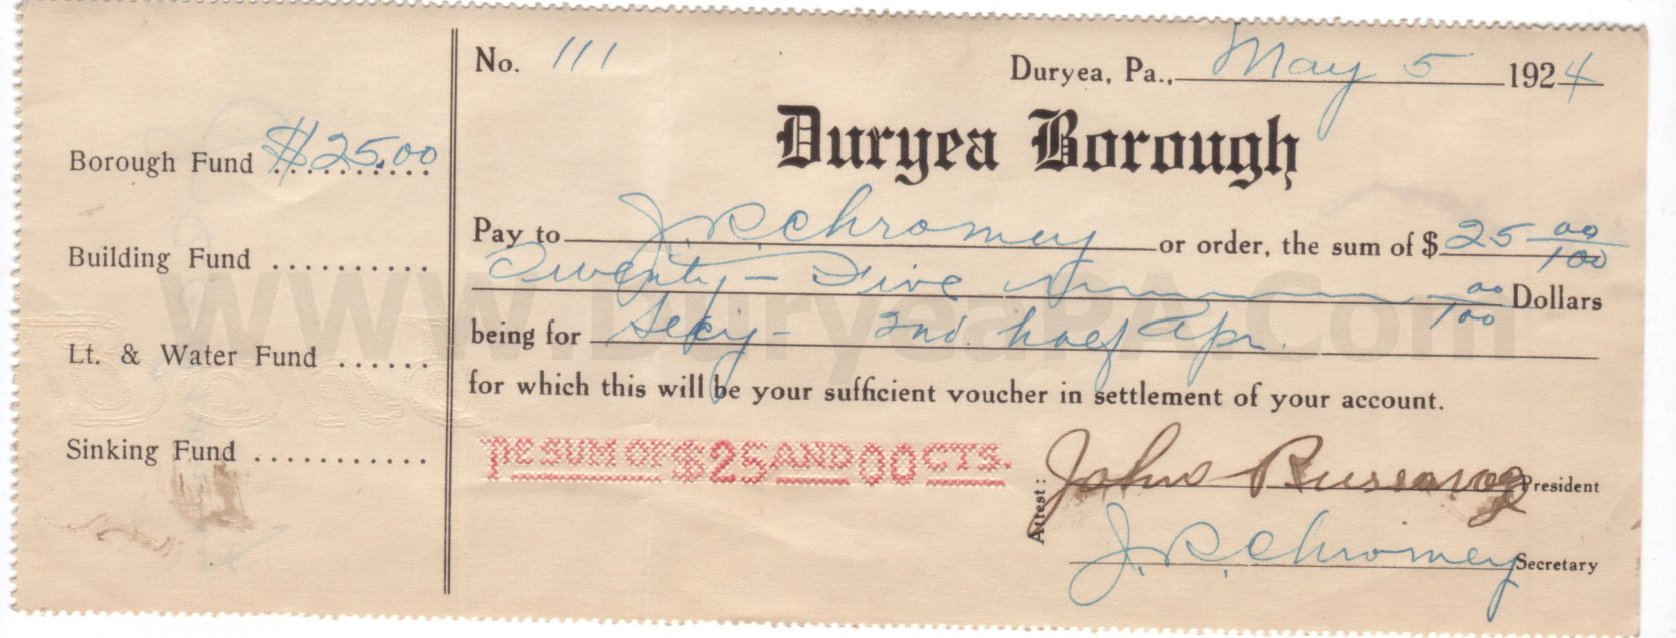 No. 111
Duryea, Pa., May 5 1924
Duryea Borough
Borough Fund $25.00
Building Fund ..........
Lt. & Water Fund ......
Sinking Fund ...........
Pay to J. P. Chromey or order, the sum of $ 25 00/100
Twenty-Five 00/100 Dollars
being for Secy - 2nd. half Apr.
for which this will be your sufficient voucher in settlement of your account.
THE SUM OF $25 AND 00 CTS.
Attest: John President
J. P. Chromey Secretary
www.DuryeaPA.com